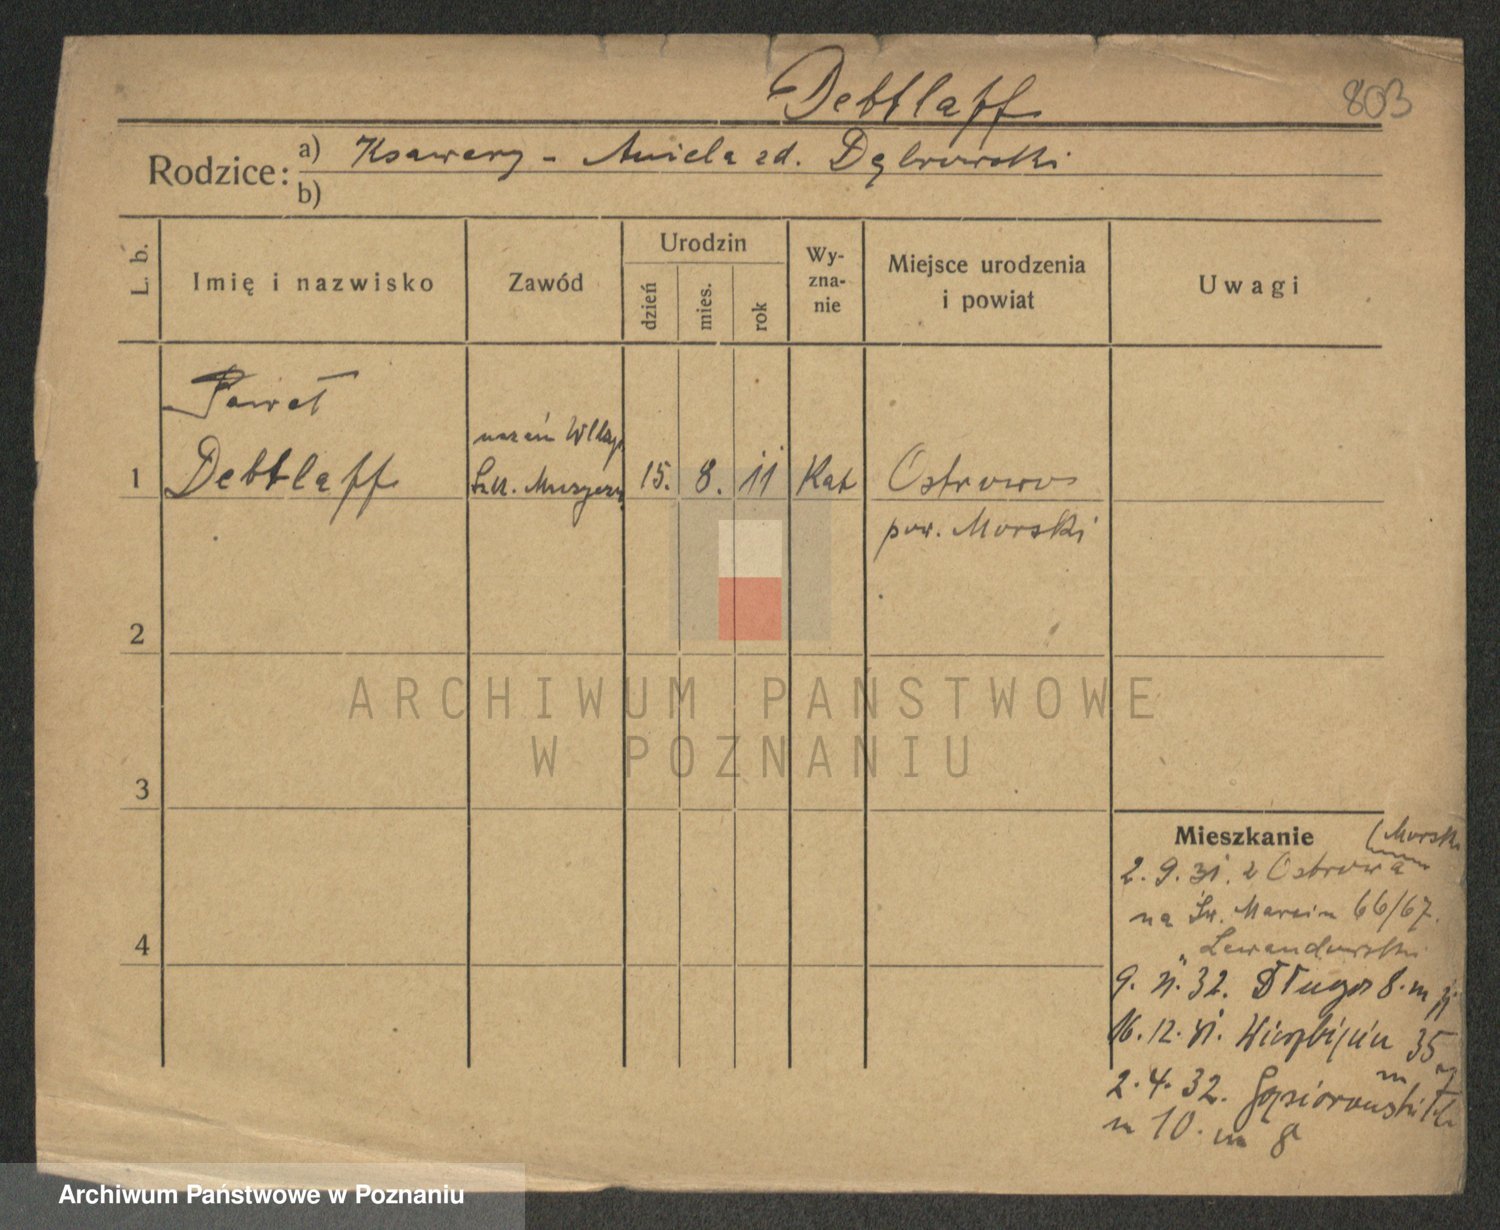 Debtlaff
803
Rodzice: a) Ksawery - Aniela zd. Dąbrowski
b)
L. b.
Imię i nazwisko
Zawód
Urodzin
dzień
mies.
rok
Wy-
zna-
nie
Miejsce urodzenia
i powiat
Uwagi
Paweł
uczeń
1 Debtlaff
Szk. Muzyczn.
15. 8. 11 Kat Ostrowo
pow. Morski
2
3
4
ARCHIWUM PAŃSTWOWE
W POZNANIU
Mieszkanie
(Morski
2. 9. 31. z Ostrowa
na Św. Marcin 66/67.
Lewandowski
9. 32. Długa 8. m
16. 12. 31. 35
m 7
2. 4. 32. Gąsiorowskich
10. m 8
Archiwum Państwowe w Poznaniu